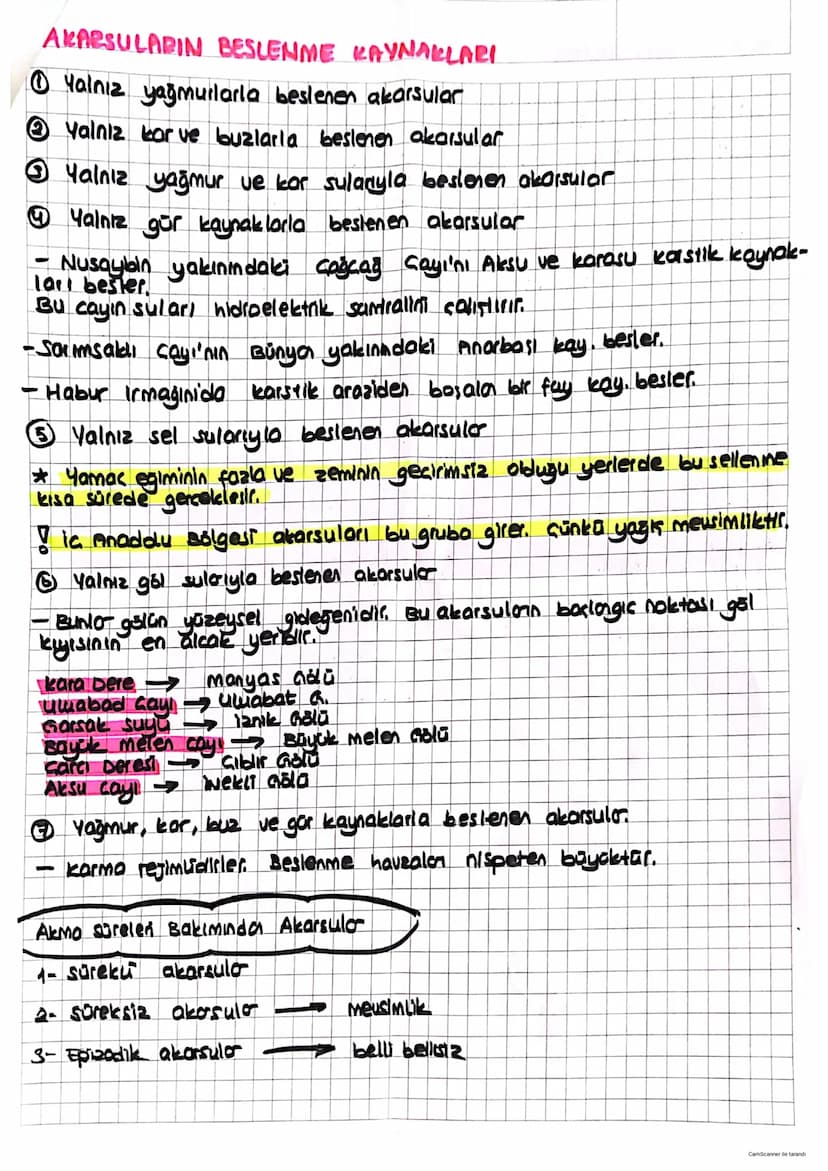 AKARSULARIN BESLENME KAYNAKLARI
① Yalnız yağmurlarla beslenen akarsular
② Yalnız kar ve buzlarla beslenen akarsular
③ Yalnız yağmur ve kar sularıyla beslenen akarsular
④ Yalnız gür kaynaklarla beslenen akarsular
- Nusaybin yakınındaki Çağcağ Çayı'nı Aksu ve karasu karstik kaynak-
ları besler.
Bu çayın suları hidroelektrik santralini çalıştırır.
- Sarımsaklı Çayı'nın Bünyan yakınındaki Pınarbaşı kay. besler.
- Habur Irmağını da karstik araziden boşalan bir fay kay. besler.
⑤ Yalnız sel sularıyla beslenen akarsular
* Yamaç eğiminin fazla ve zeminin geçirimsiz olduğu yerlerde bu sellenme
kısa sürede gerçekleşir.
! İç Anadolu Bölgesi akarsuları bu gruba girer. Çünkü yağış mevsimliktir.
⑥ Yalnız göl sularıyla beslenen akarsular
- Bunlar gölün yüzeysel gideğenidir. Bu akarsuların başlangıç noktası göl
kıyısının en alçak yeridir.
Kara Dere → Manyas Gölü
Uluabad Çayı → Uluabat G.
Garsak Suyu → İznik Gölü
Büyük Melen Çayı → Büyük Melen Gölü
Sarfı Deresi → Cıblır Gölü
Aksu Çayı → İnekli Gölü
⑦ Yağmur, kar, buz ve gür kaynaklarla beslenen akarsular.
- Karma rejimlidirler. Beslenme havzaları nispeten büyüktür.
Akma Süreleri Bakımından Akarsular
1- Sürekli akarsular
2- Süreksiz akarsular → Mevsimlik
3- Epizodik akarsular → belli belirsiz
CamScanner ile tarandı